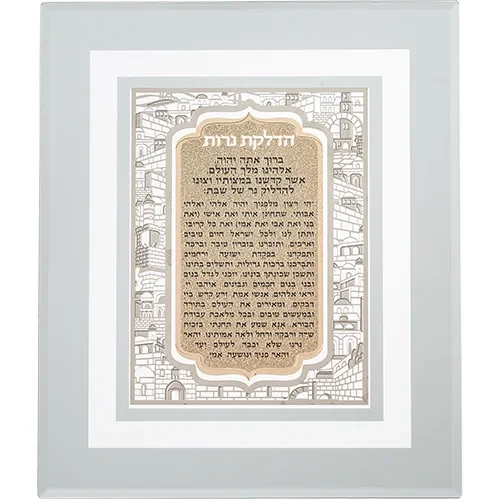 הדלקת נרות
ברוך אתה יהוה,
אלהינו מלך העולם,
אשר קדשנו במצותיו וצונו
להדליק נר של שבת:
יהי רצון מלפניך יהוה אלהי ואלהי
אבותי, שתחונן אותי ואת אישי (ואת
בני ואת בנותי ואת אבי ואת אמי) ואת כל קרובי,
ותתן לנו ולכל ישראל חיים טובים
וארכים, ותזכרנו בזכרון טובה וברכה,
ותפקדנו בפקודת ישועה ורחמים,
ותברכנו ברכות גדולות, ותשלים בתינו,
ותשכן שכינתך בינינו. וזכני לגדל בנים
ובני בנים חכמים ונבונים, אוהבי יי
יראי אלהים, אנשי אמת, זרע קדש, ביי
דבקים, ומאירים את העולם בתורה
ובמעשים טובים, ובכל מלאכת עבודת
הבורא. אנא שמע את תחנתי, בזכות
שרה ורבקה ורחל ולאה אמותינו, והאר
נרנו שלא יכבה לעולם ועד,
והאר פניך ונושעה, אמן